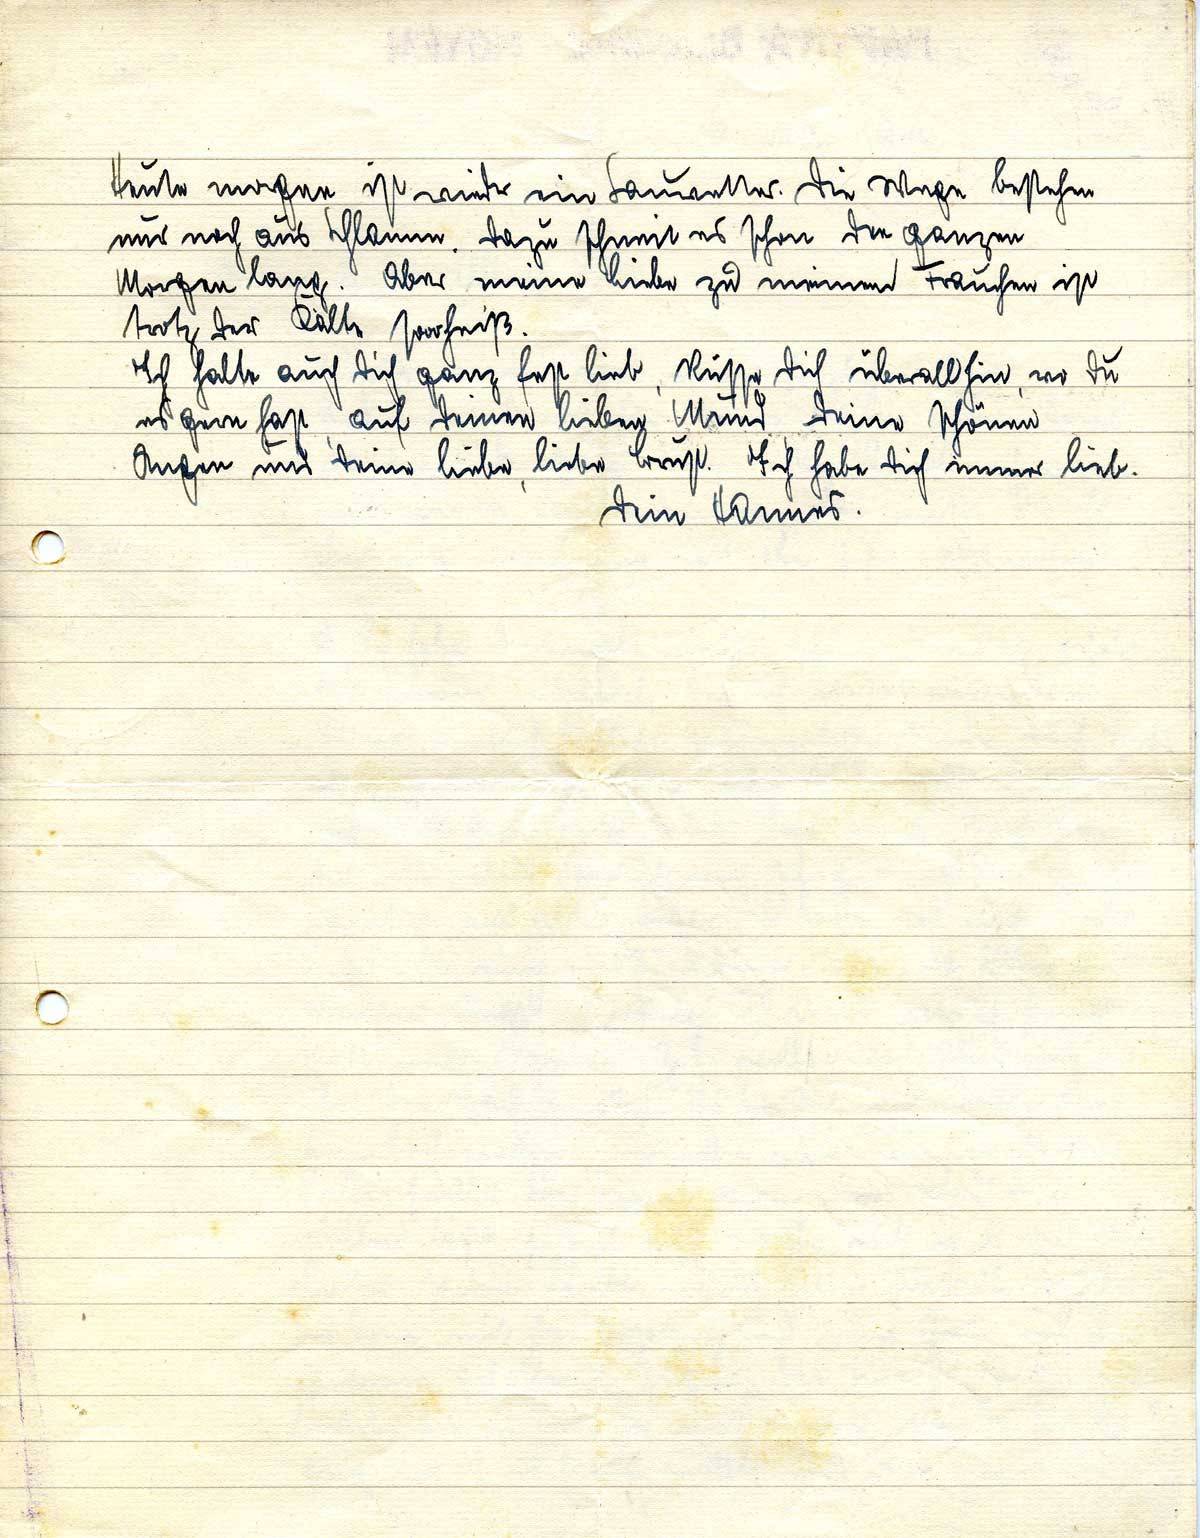 Heute morgen ist wieder ein Sauwetter. Die Wege bestehen
nur noch aus Schlamm. Dazu schneit es schon den ganzen
Morgen lang. Aber meine Liebe zu meinem Frauchen ist
trotz der Kälte
Ich halte auch Dich ganz fest lieb, küsse Dich überall hin, wo Du
es gern hast, auf deinen lieben Mund deine schönen
Augen und deine liebe, liebe Brust. Ich habe Dich immer lieb.
Dein Hannes.